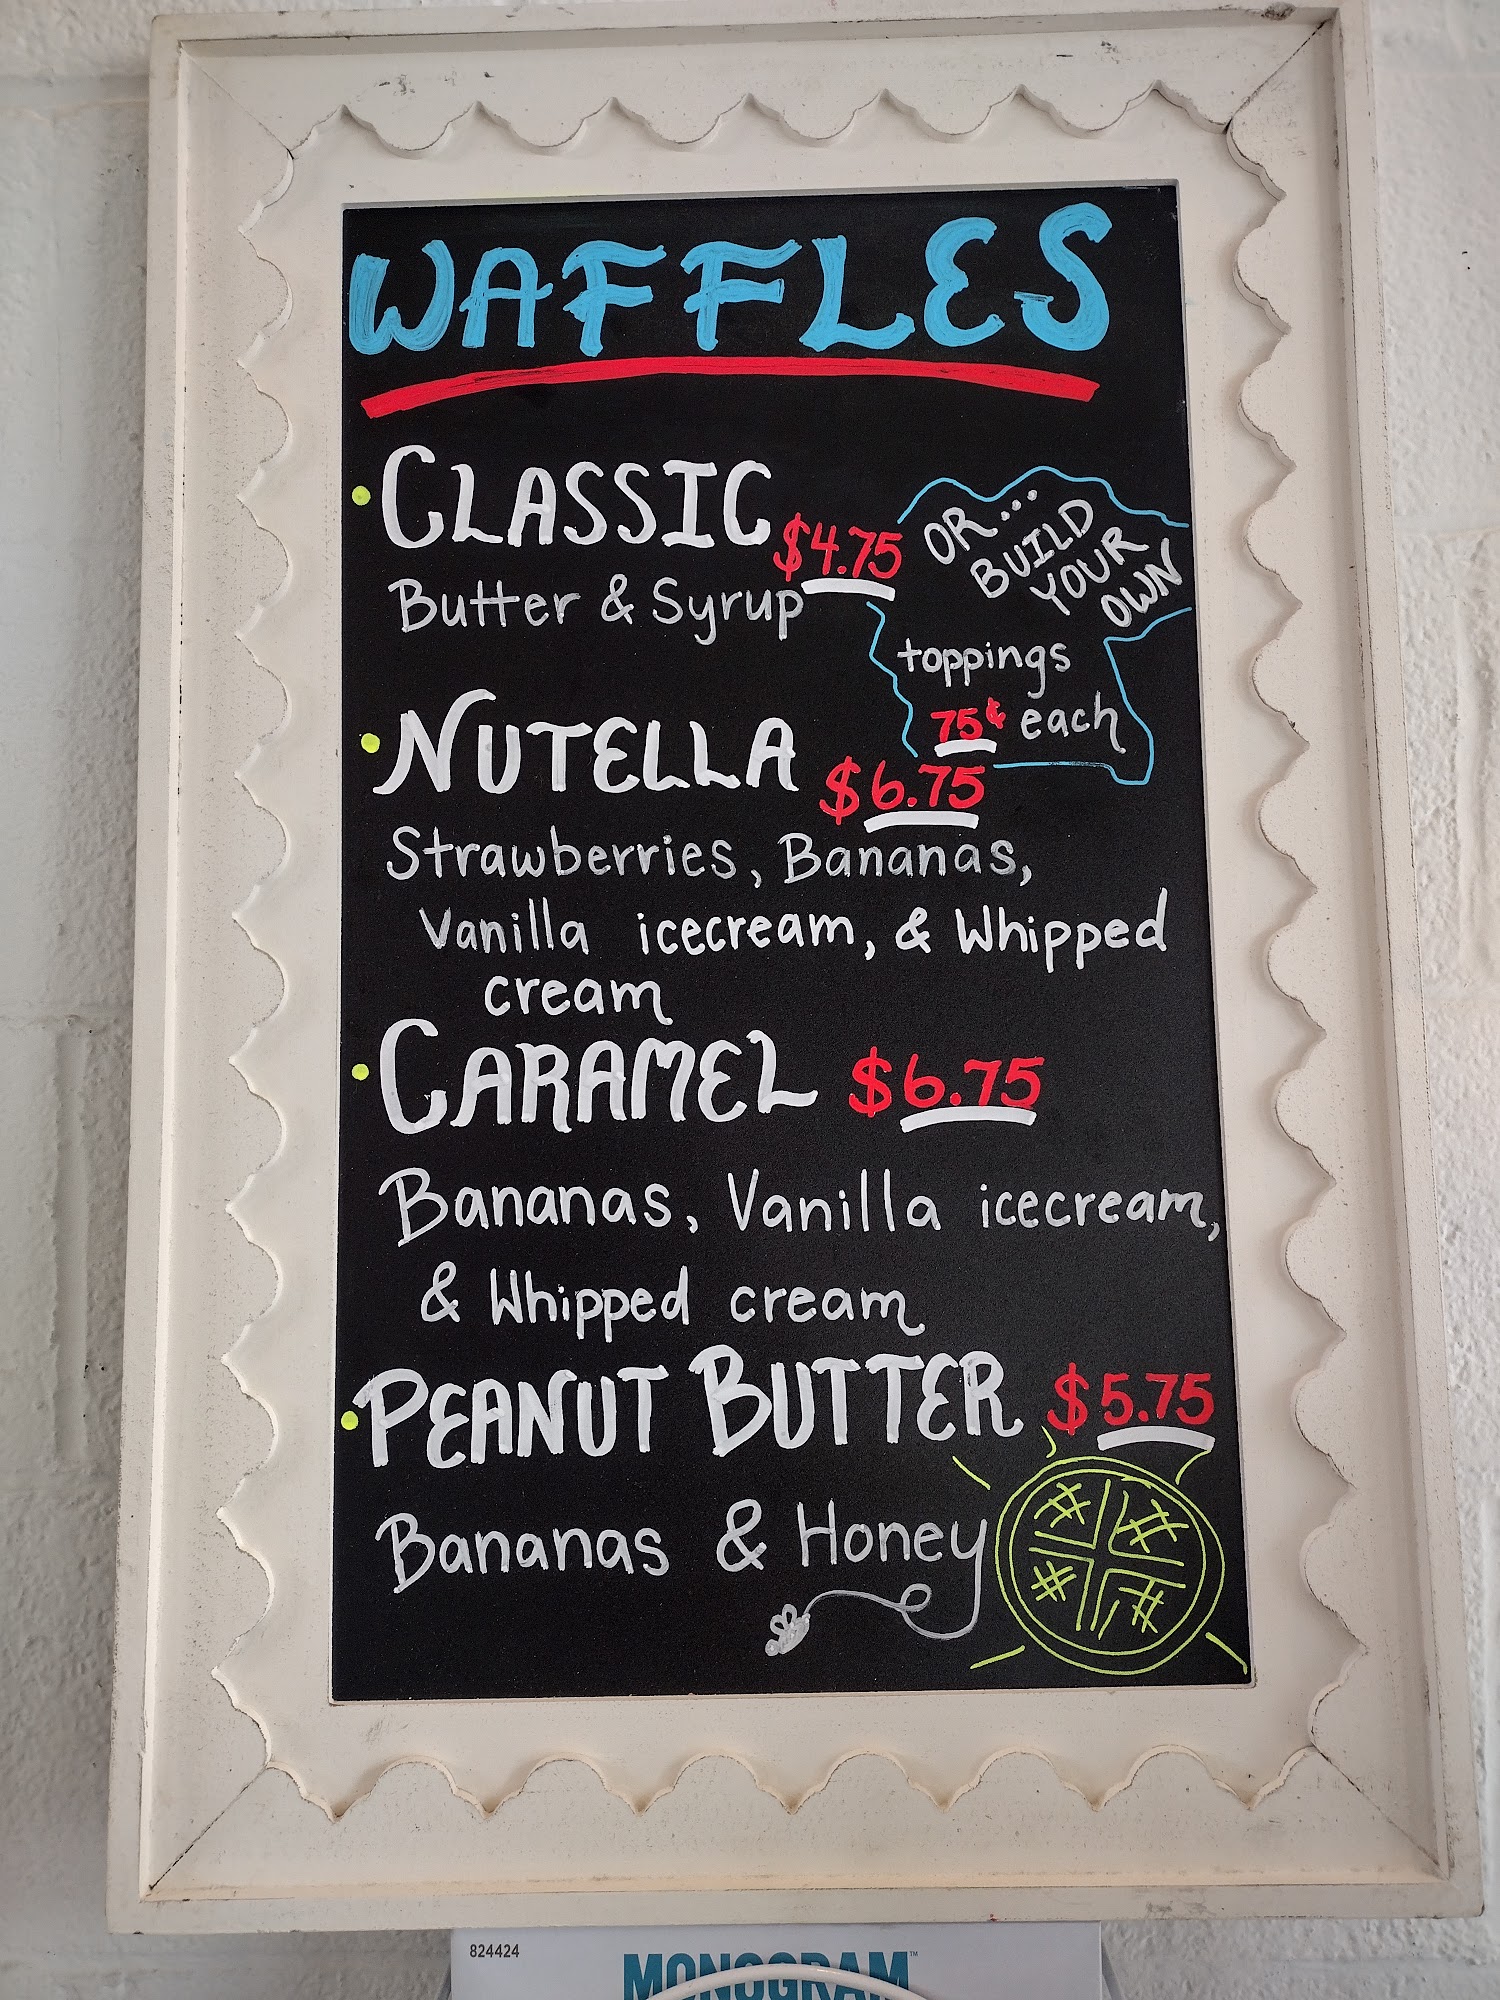 WAFFLES
CLASSIC $4.75
Butter & Syrup
OR...
BUILD
YOUR
OWN
toppings
75¢ each
NUTELLA $6.75
Strawberries, Bananas,
Vanilla icecream, & Whipped
cream
CARAMEL $6.75
Bananas, Vanilla icecream,
& Whipped cream
PEANUT BUTTER $5.75
Bananas & Honey
824424
MONOGRAM™